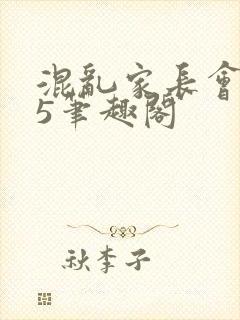 混亂家長會
5筆趣閣
秋李子